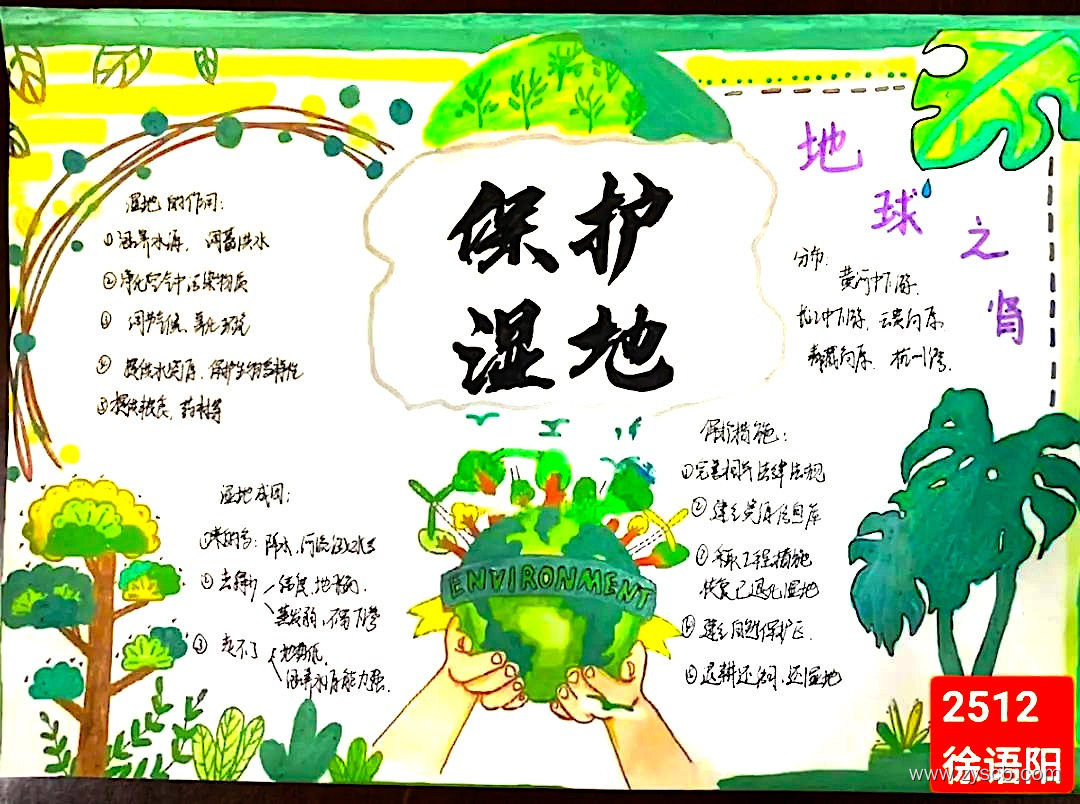 保护
湿地
地球之肾
湿地的作用:
①涵养水源, 调蓄洪水
②净化空气中污染物质
③ 调节气候、美化环境
④ 提供水资源、保护生物多样性
⑤提供粮食, 药材等
分布:
黄河中下游、
长江中下游、云贵高原
青藏高原、杭州湾、
湿地成因:
①来的多: 降水、河流
② 去得少
结冻, 地下
蒸发弱, 不易下渗
③ 走不了
地势低
涵养水库能力强.
ENVIRONMENT
保护措施:
①完善相关法律法规
② 建立资源信息库
③ 采取工程措施
恢复已退化湿地
④ 建立自然保护区.
⑤退耕还湖,还湿地
2512
徐语阳